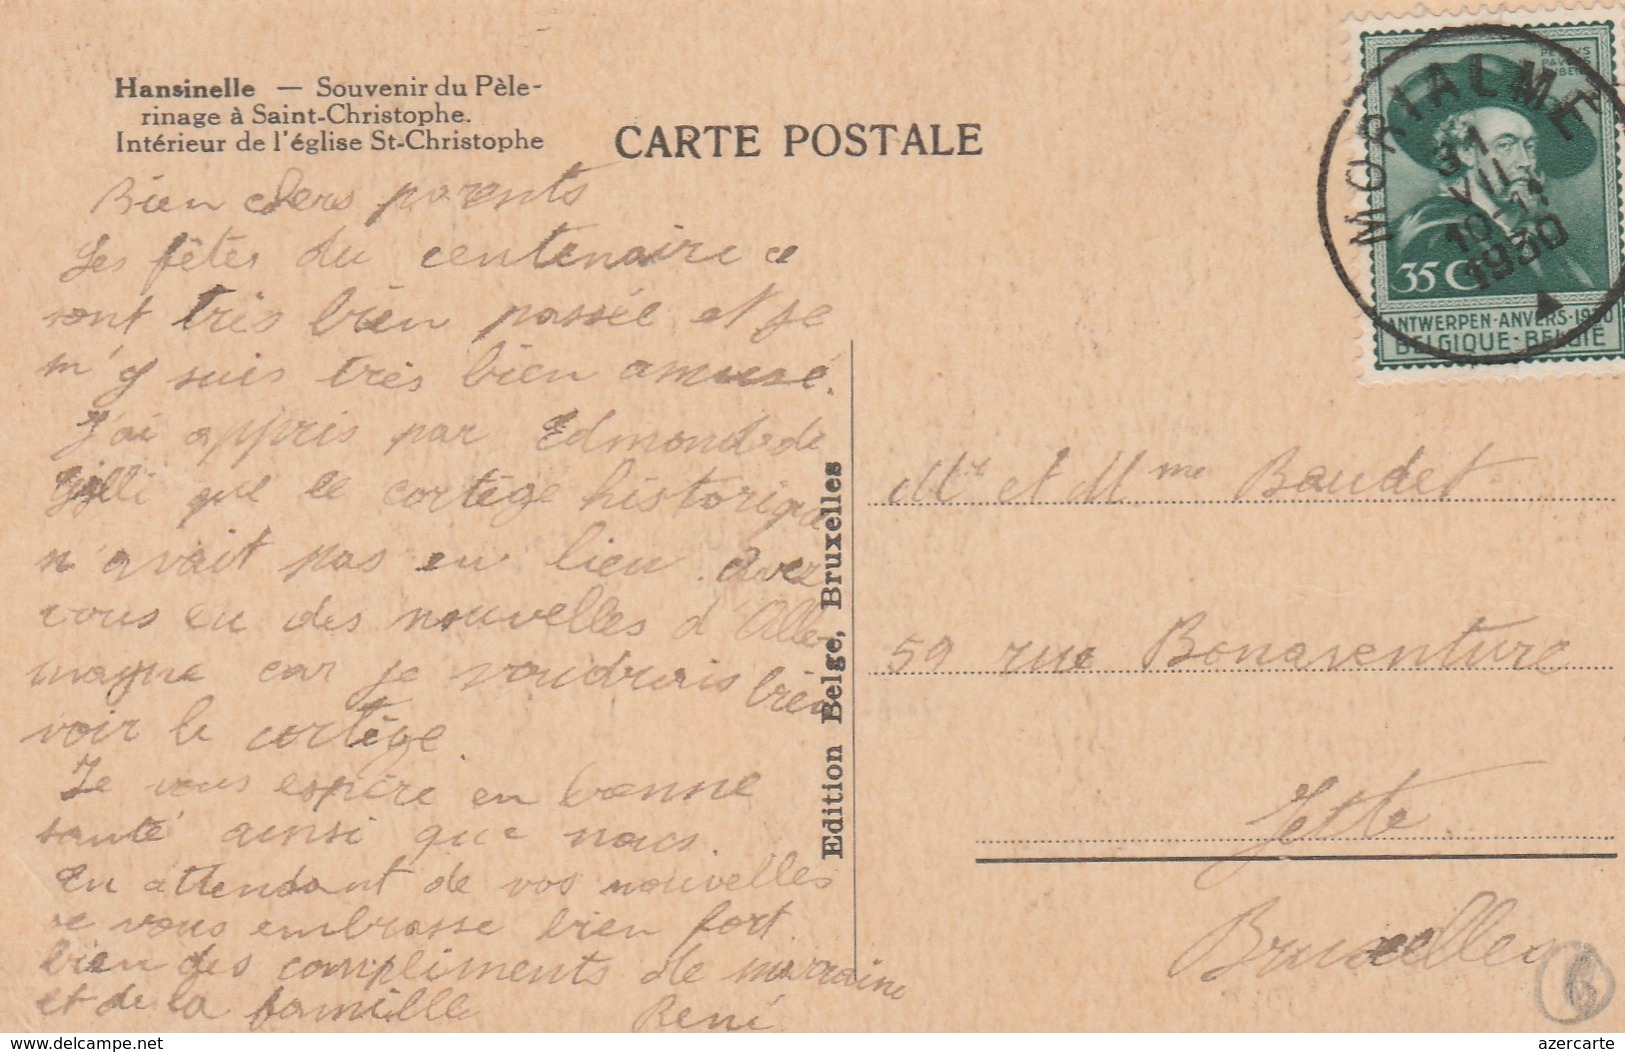 Hansinelle — Souvenir du Pèle-
rinage à Saint-Christophe.
Intérieur de l'église St-Christophe
CARTE POSTALE
PETRVS
PAVLVS
RUBENS
MORIALMÉ
31
VII
10-11
1930
35 C
ANTWERPEN·ANVERS·1930
BELGIQUE-BELGIË
Bien chers parents
Les fêtes du centenaire ce
sont très bien passée et je
m'y suis très bien amusé.
J'ai appris par Edmond de
Gilli que le cortège historique
n'avait pas eu lieu. avez
vous eu des nouvelles d'Alle-
magne car je voudrais bien
voir le cortège.
Je vous espère en bonne
santé ainsi que nous.
En attendant de vos nouvelles
je vous embrasse bien fort
bien des compliments de marraine
et de la famille René
Edition Belge, Bruxelles
Mr et Mme Baudet
59 rue Bonaventure
Jette
Bruxelles
6
www.delcampe.net
azercarte